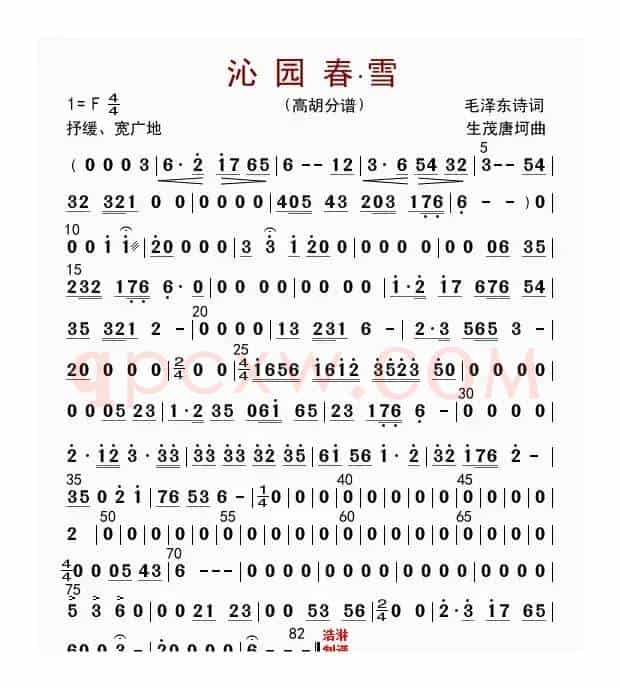 沁园春·雪
1= F 4/4 （高胡分谱） 毛泽东诗词
抒缓、宽广地 生茂唐坷曲
5
( 0 0 0 3 | 6· 2 17 65 | 6 - - 12 | 3· 6 54 32 | 3 - - 54 |
32 321 0 0 | 0 0 0 0 | 405 43 203 176 | 6 - - ) 0 |
10
0 0 i i | 20 0 0 0 | 3 3 i 20 0 | 0 0 0 0 | 0 0 06 35 |
15
232 176 6· 0 | 00 00 | 00 00 | i· 2 i7 676 54 |
20
35 321 2 - | 0 0 0 0 | 13 231 6 - | 2· 3 565 3 - |
25
20 0 0 0 | 2/4 0 0 | 4/4 1656 1612 3523 50 | 0 0 0 0 | 0 0 0 0 |
30
0 0 05 23 | 1· 2 35 061 65 | 23 176 6 - | 0 0 0 0 |
2· 12 3· 33 | 33 33 32 35 | 61 56 1· 2 | 32 176 2 - |
35 40 45
35 0 2 i | 76 53 6 - | 1/4 0 | 0 | 0 | 0 | 0 | 0 | 0 | 0 | 0 | 0 | 0 | 0 |
50 55 60 65
2 | 0 | 0 | 0 | 0 | 0 | 0 | 0 | 0 | 0 | 0 | 0 | 0 | 0 | 0 | 0 | 0 | 0 | 0 | 0 |
70
4/4 0 0 05 43 | 6 - - - | 0 0 0 0 | 0 0 0 0 | 0 0 0 0 | 0 0 0 0 |
75
5 3 6 0 | 0 0 21 23 | 0 0 53 56 | 2/4 0 0 | 4/4 0 0 0 0 | 2· 3 i 765 |
82
浩淋
qpcxw.com